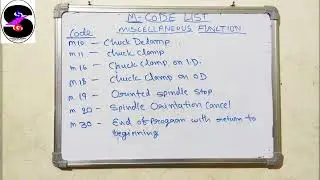 M-CODE LIST
MISCELLANEOUS FUNCTION
Code
M10 - Chuck Declamp
M11 - Chuck clamp
M16 - Chuck clamp on I.D.
M18 - Chuck clamp on OD
M19 - Oriented spindle stop
M20 - Spindle Orientation Cancel
M30 - End of Program with return to
beginning